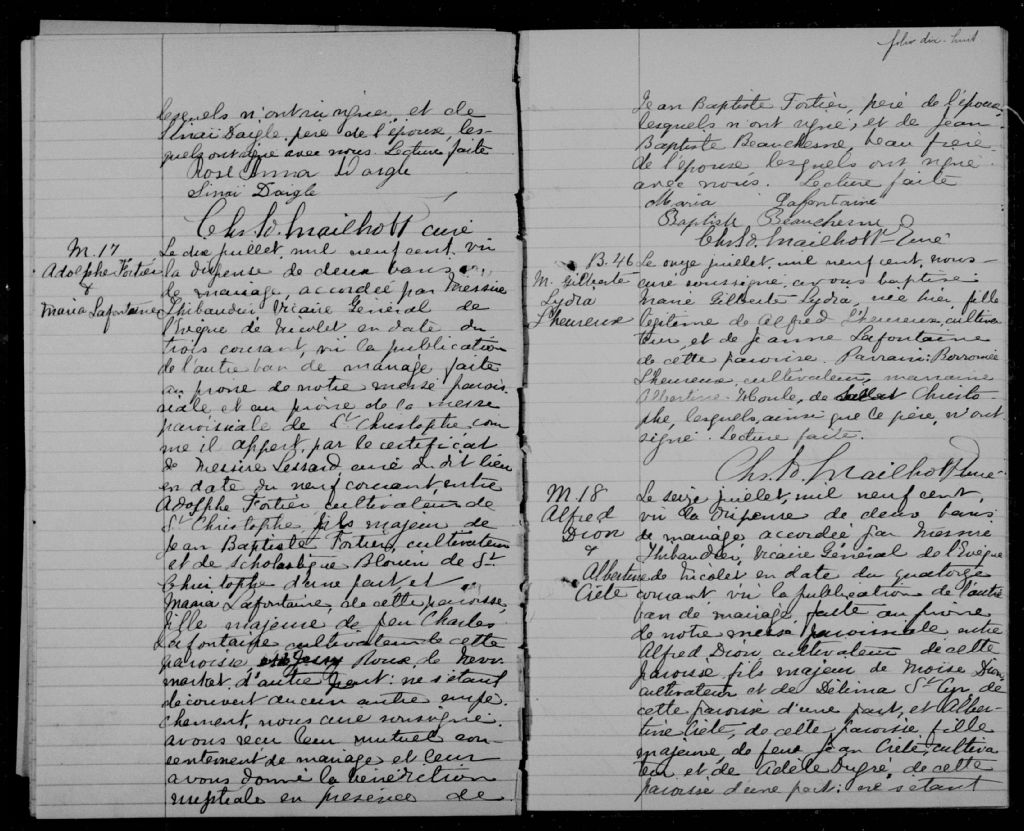 lesquels n'ont su signer et de
Sinaï Daigle, père de l'épouse, les-
quels ont signé avec nous. Lecture faite
Rose Anna Daigle
Sinaï Daigle
Chs. D. Mailhott curé
M. 17
Adolphe Fortier
&
Maria Lafontaine
Le dix juillet, mil neuf cent, vu
la dispense de deux bans
de mariage accordée par Messire
Thibaudier, Vicaire Général de
l'Evêque de Nicolet en date du
trois courant, vu la publication
de l'autre ban de mariage faite
au prone de notre messe parois
siale et au prone de la messe
paroissiale de St Christophe, com
me il appert par le certificat
de Messire Lessard curé du dit lieu
en date du neuf courant, entre
Adolphe Fortier cultivateur de
St Christophe, fils majeur de
Jean Baptiste Fortier, cultivateur
et de Scholastique Blouin de St.
Christophe d'une part et
Maria Lafontaine, de cette paroisse
fille majeure de feu Charles
Lafontaine cultivateur de cette
paroisse, Roux, de New
market, d'autre part: ne s'étant
découvert aucun autre empê
chement, nous curé soussigné,
avons reçu leur mutuel con-
sentement de mariage et leur
avons donné la bénédiction
nuptiale en présence de
folio dix-huit
Jean Baptiste Fortier, père de l'époux,
lesquels n'ont signé; et de Jean
Baptiste Beauchesne, beau frère
de l'épouse lesquels ont signé
avec nous. Lecture faite
Maria Lafontaine
Baptiste Beauchesne
Chs. D. Mailhott Curé
B. 46
M. Gilberte
Lydia
L'heureux
Le onze juillet, mil neuf cent, nous
curé soussigné, avons baptisé
Marie Gilberte Lydia, née hier, fille
légitime de Alfred L'heureux, cultiva
teur, et de Jeanne Lafontaine
de cette paroisse. Parrain: Borromée
L'heureux, cultivateur, marraine
Albertine Houle, de Christo-
phe, lesquels, ainsi que le père, n'ont
signé. Lecture faite.
Chs. D. Mailhott Curé
M. 18
Alfred
Dion
&
Albertine
Ciele
Le seize juillet, mil neuf cent,
vu la dispense de deux bans
de mariage accordée par Messire
Thibaudier, Vicaire Général de l'Evêque
de Nicolet en date du quatorze
courant vu la publication de l'autre
ban de mariage, faite au prone
de notre messe paroissiale, entre
Alfred Dion cultivateur de cette
paroisse fils majeur de Moïse Dion,
cultivateur et de Délima St Cyr, de
cette paroisse d'une part, et Alber-
tine Ciele, de cette paroisse, fille
majeure, de feu Jean Ciele, cultiva
teur et de Adèle Dugré, de cette
paroisse d'une part: ne s'étant